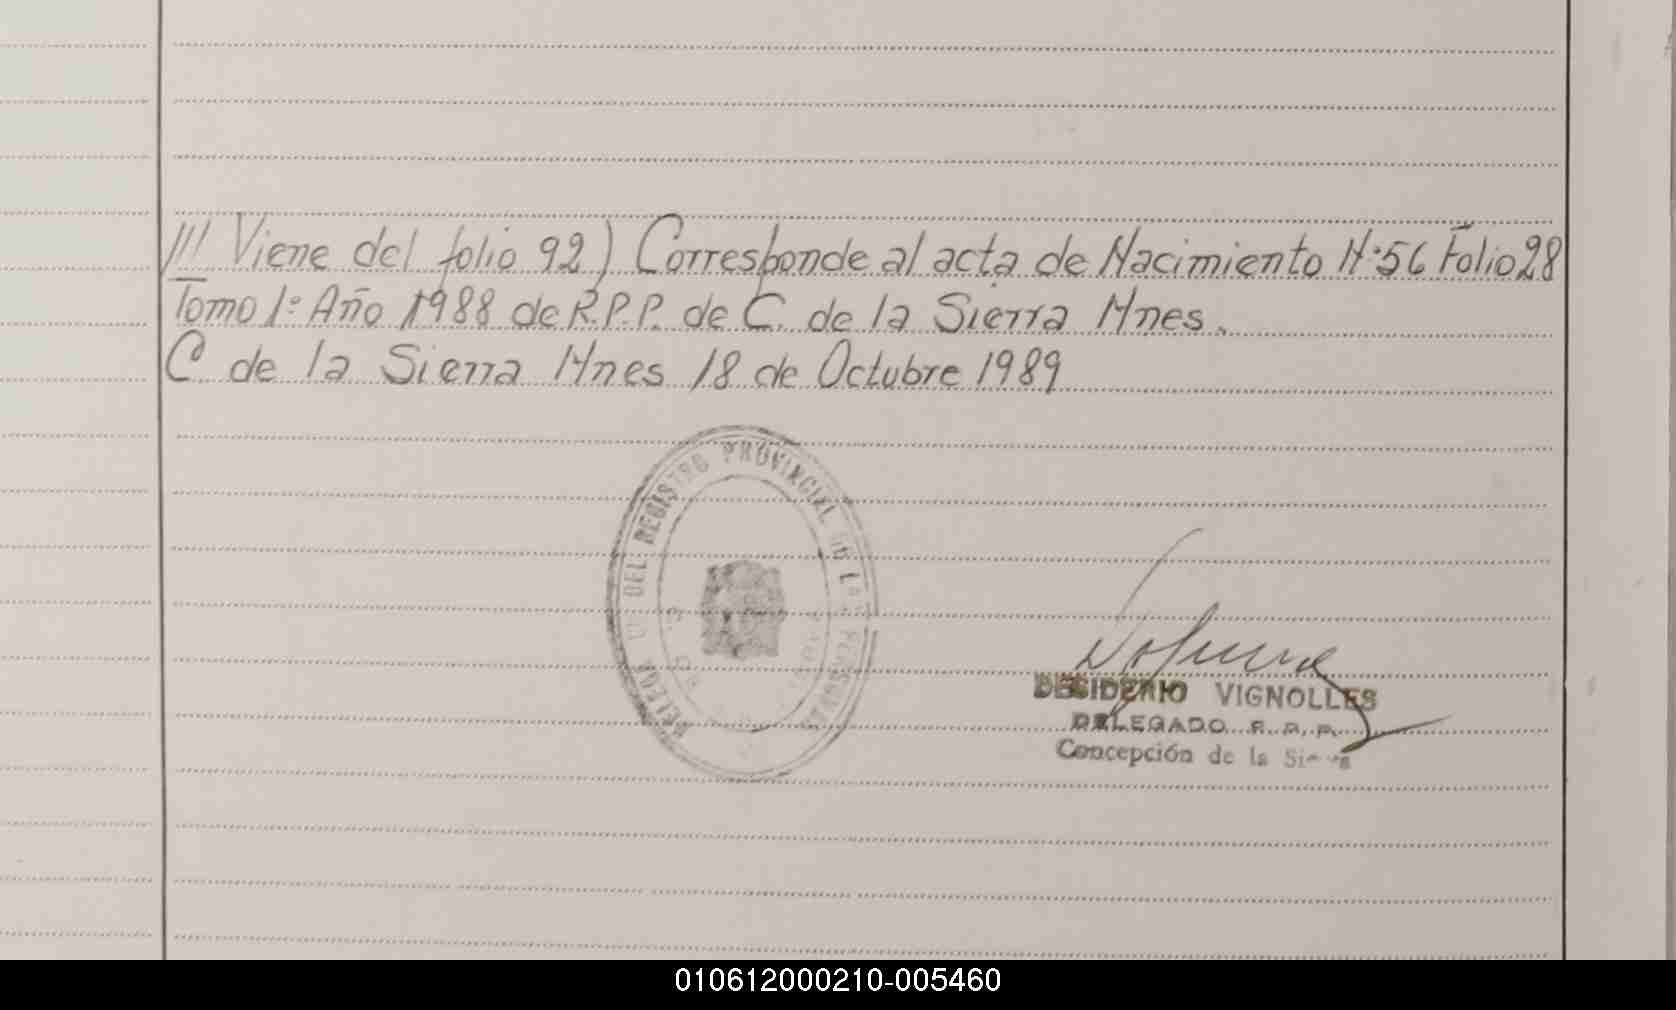 /// Viene del folio 92) Corresponde al acta de Nacimiento N:56 Folio 28
Tomo 1º Año 1988 de R.P.P. de C. de la Sierra Mnes.
C de la Sierra Mnes 18 de Octubre 1989
DEL REGISTRO PROVINCIAL DE LAS PERSONAS
DESIDERIO VIGNOLLES
DELEGADO R. P. P.
Concepción de la Sierra
010612000210-005460